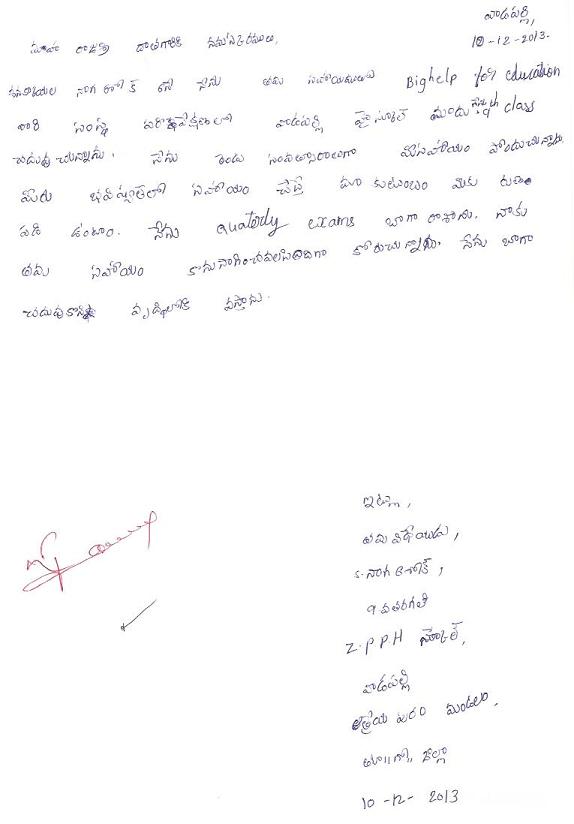 వాడపల్లి,
10-12-2013.
మా రాజశ్రీ దాతగారికి నమస్కారములు,
నాగ అశోక్ అనే నేను తమ సహాయముతో Bighelp for education
వారి సంస్థ పర్యవేక్షణలో వాడపల్లి హైస్కూల్ నందు 9th class
చదువుచున్నాను. నేను రెండు సంవత్సరాలుగా మీసహాయం పొందుచున్నాను
మీరు భవిష్యత్‌లో సహాయం చేస్తే మా కుటుంబం మీకు రుణ
పడి ఉంటాం. నేను quaterly exams బాగా రాశాను. నాకు
తమ సహాయం కొనసాగించవలసినదిగా కోరుచున్నాను. నేను బాగా
చదువుకొని వృద్ధిలోకి వస్తాను.
ఇట్లు,
తమ విధేయుడు,
S. నాగ అశోక్,
9 వతరగతి
Z.P.P.H స్కూల్,
వాడపల్లి
ఆత్రేయ పురం మండలం,
తూ॥గో॥ జిల్లా
10-12-2013